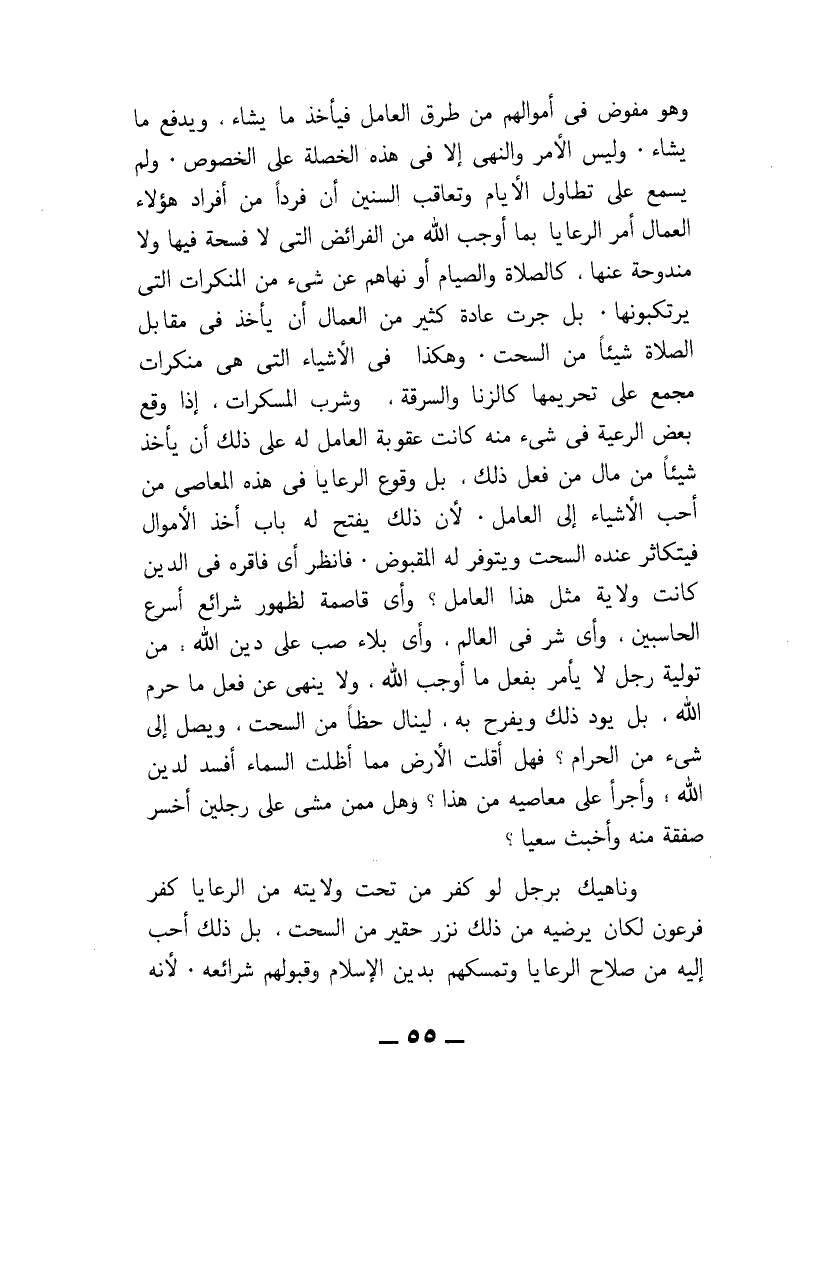 وهو مفوض فى أموالهم من طرق العامل فيأخذ ما يشاء ، ويدفع ما
يشاء ٠ وليس الأمر والنهى إلا فى هذه الخصلة على الخصوص ٠ ولم
يسمع على تطاول الأيام وتعاقب السنين أن فرداً من أفراد هؤلاء
العمال أمر الرعايا بما أوجب الله من الفرائض التى لا فسحة فيها ولا
مندوحة عنها ، كالصلاة والصيام أو نهاهم عن شىء من المنكرات التى
يرتكبونها ٠ بل جرت عادة كثير من العمال أن يأخذ فى مقابل
الصلاة شيئاً من السحت ٠ وهكذا فى الأشياء التى هى منكرات
مجمع على تحريمها كالزنا والسرقة ، وشرب المسكرات ، إذا وقع
بعض الرعية فى شىء منه كانت عقوبة العامل له على ذلك أن يأخذ
شيئاً من مال من فعل ذلك ، بل وقوع الرعايا فى هذه المعاصى من
أحب الأشياء إلى العامل ٠ لأن ذلك يفتح له باب أخذ الأموال
فيتكاثر عنده السحت ويتوفر له المقبوض ٠ فانظر أى فاقره فى الدين
كانت ولاية مثل هذا العامل ؟ وأى قاصمة لظهور شرائع أسرع
الحاسبين ، وأى شر فى العالم ، وأى بلاء صب على دين الله ، من
تولية رجل لا يأمر بفعل ما أوجب الله ، ولا ينهى عن فعل ما حرم
الله ، بل يود ذلك ويفرح به ، لينال حظاً من السحت ، ويصل إلى
شىء من الحرام ؟ فهل أقلت الأرض مما أظلت السماء أفسد لدين
الله ، وأجرأ على معاصيه من هذا ؟ وهل ممن مشى على رجلين أخسر
صفقة منه وأخبث سعيا ؟
وناهيك برجل لو كفر من تحت ولايته من الرعايا كفر
فرعون لكان يرضيه من ذلك نزر حقير من السحت ، بل ذلك أحب
إليه من صلاح الرعايا وتمسكهم بدين الإسلام وقبولهم شرائعه ٠ لأنه
ـ ٥٥ ـ